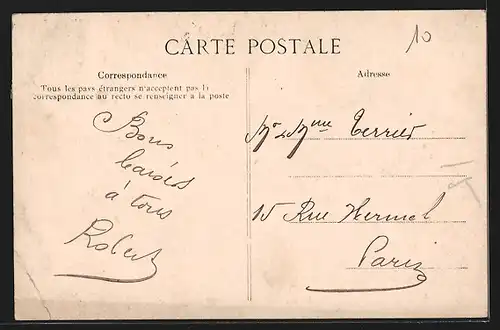 10
CARTE POSTALE
Correspondance
Tous les pays étrangers n'acceptent pas la
correspondance au recto se renseigner à la poste
Bons
baisers
à tous
Robert
Adresse
Mr & Mme Terrier
15 Rue Hermel
Paris